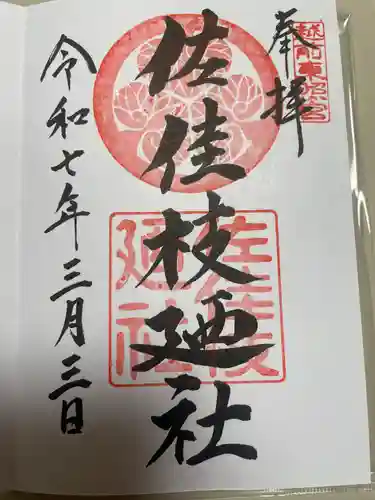 奉拝
越前東照宮
佐佳枝廼社
佐佳枝
廼社
令和七年三月三日